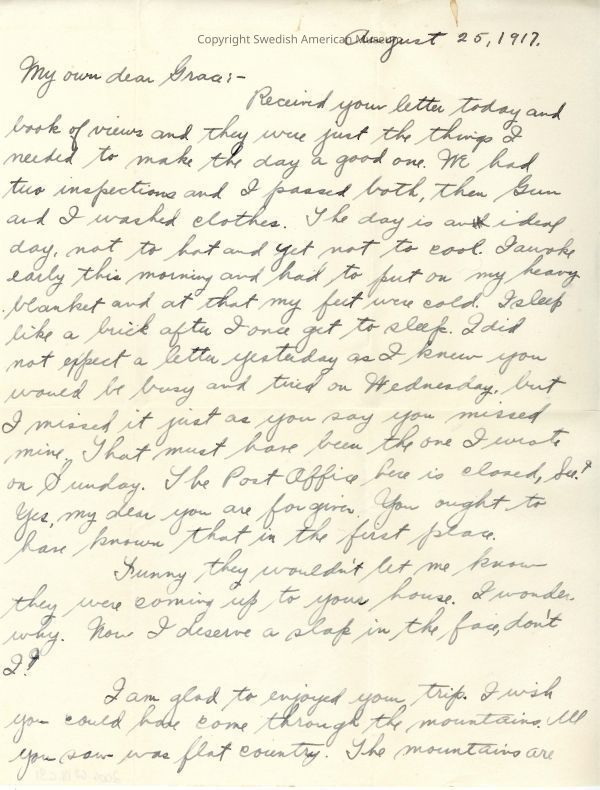 Copyright Swedish American Museum
August 25, 1917.
My own dear Grace:-
Received your letter today and
book of views and they were just the things I
needed to make the day a good one. We had
two inspections and I passed both, then Gun
and I washed clothes. The day is an ideal
day, not to hot and yet not to cool. I awoke
early this morning and had to put on my heavy
blanket and at that my feet were cold. I sleep
like a brick after I once get to sleep. I did
not expect a letter yesterday as I knew you
would be busy and tired on Wednesday, but
I missed it just as you say you missed
mine. That must have been the one I wrote
on Sunday. The Post Office here is closed, See?
Yes, my dear you are forgiven. You ought to
have known that in the first place.
Funny they wouldn't let me know
they were coming up to your house. I wonder
why. Now I deserve a slap in the face, don't
I?
I am glad to enjoyed your trip. I wish
you could have come through the mountains. All
you saw was flat country. The mountains are